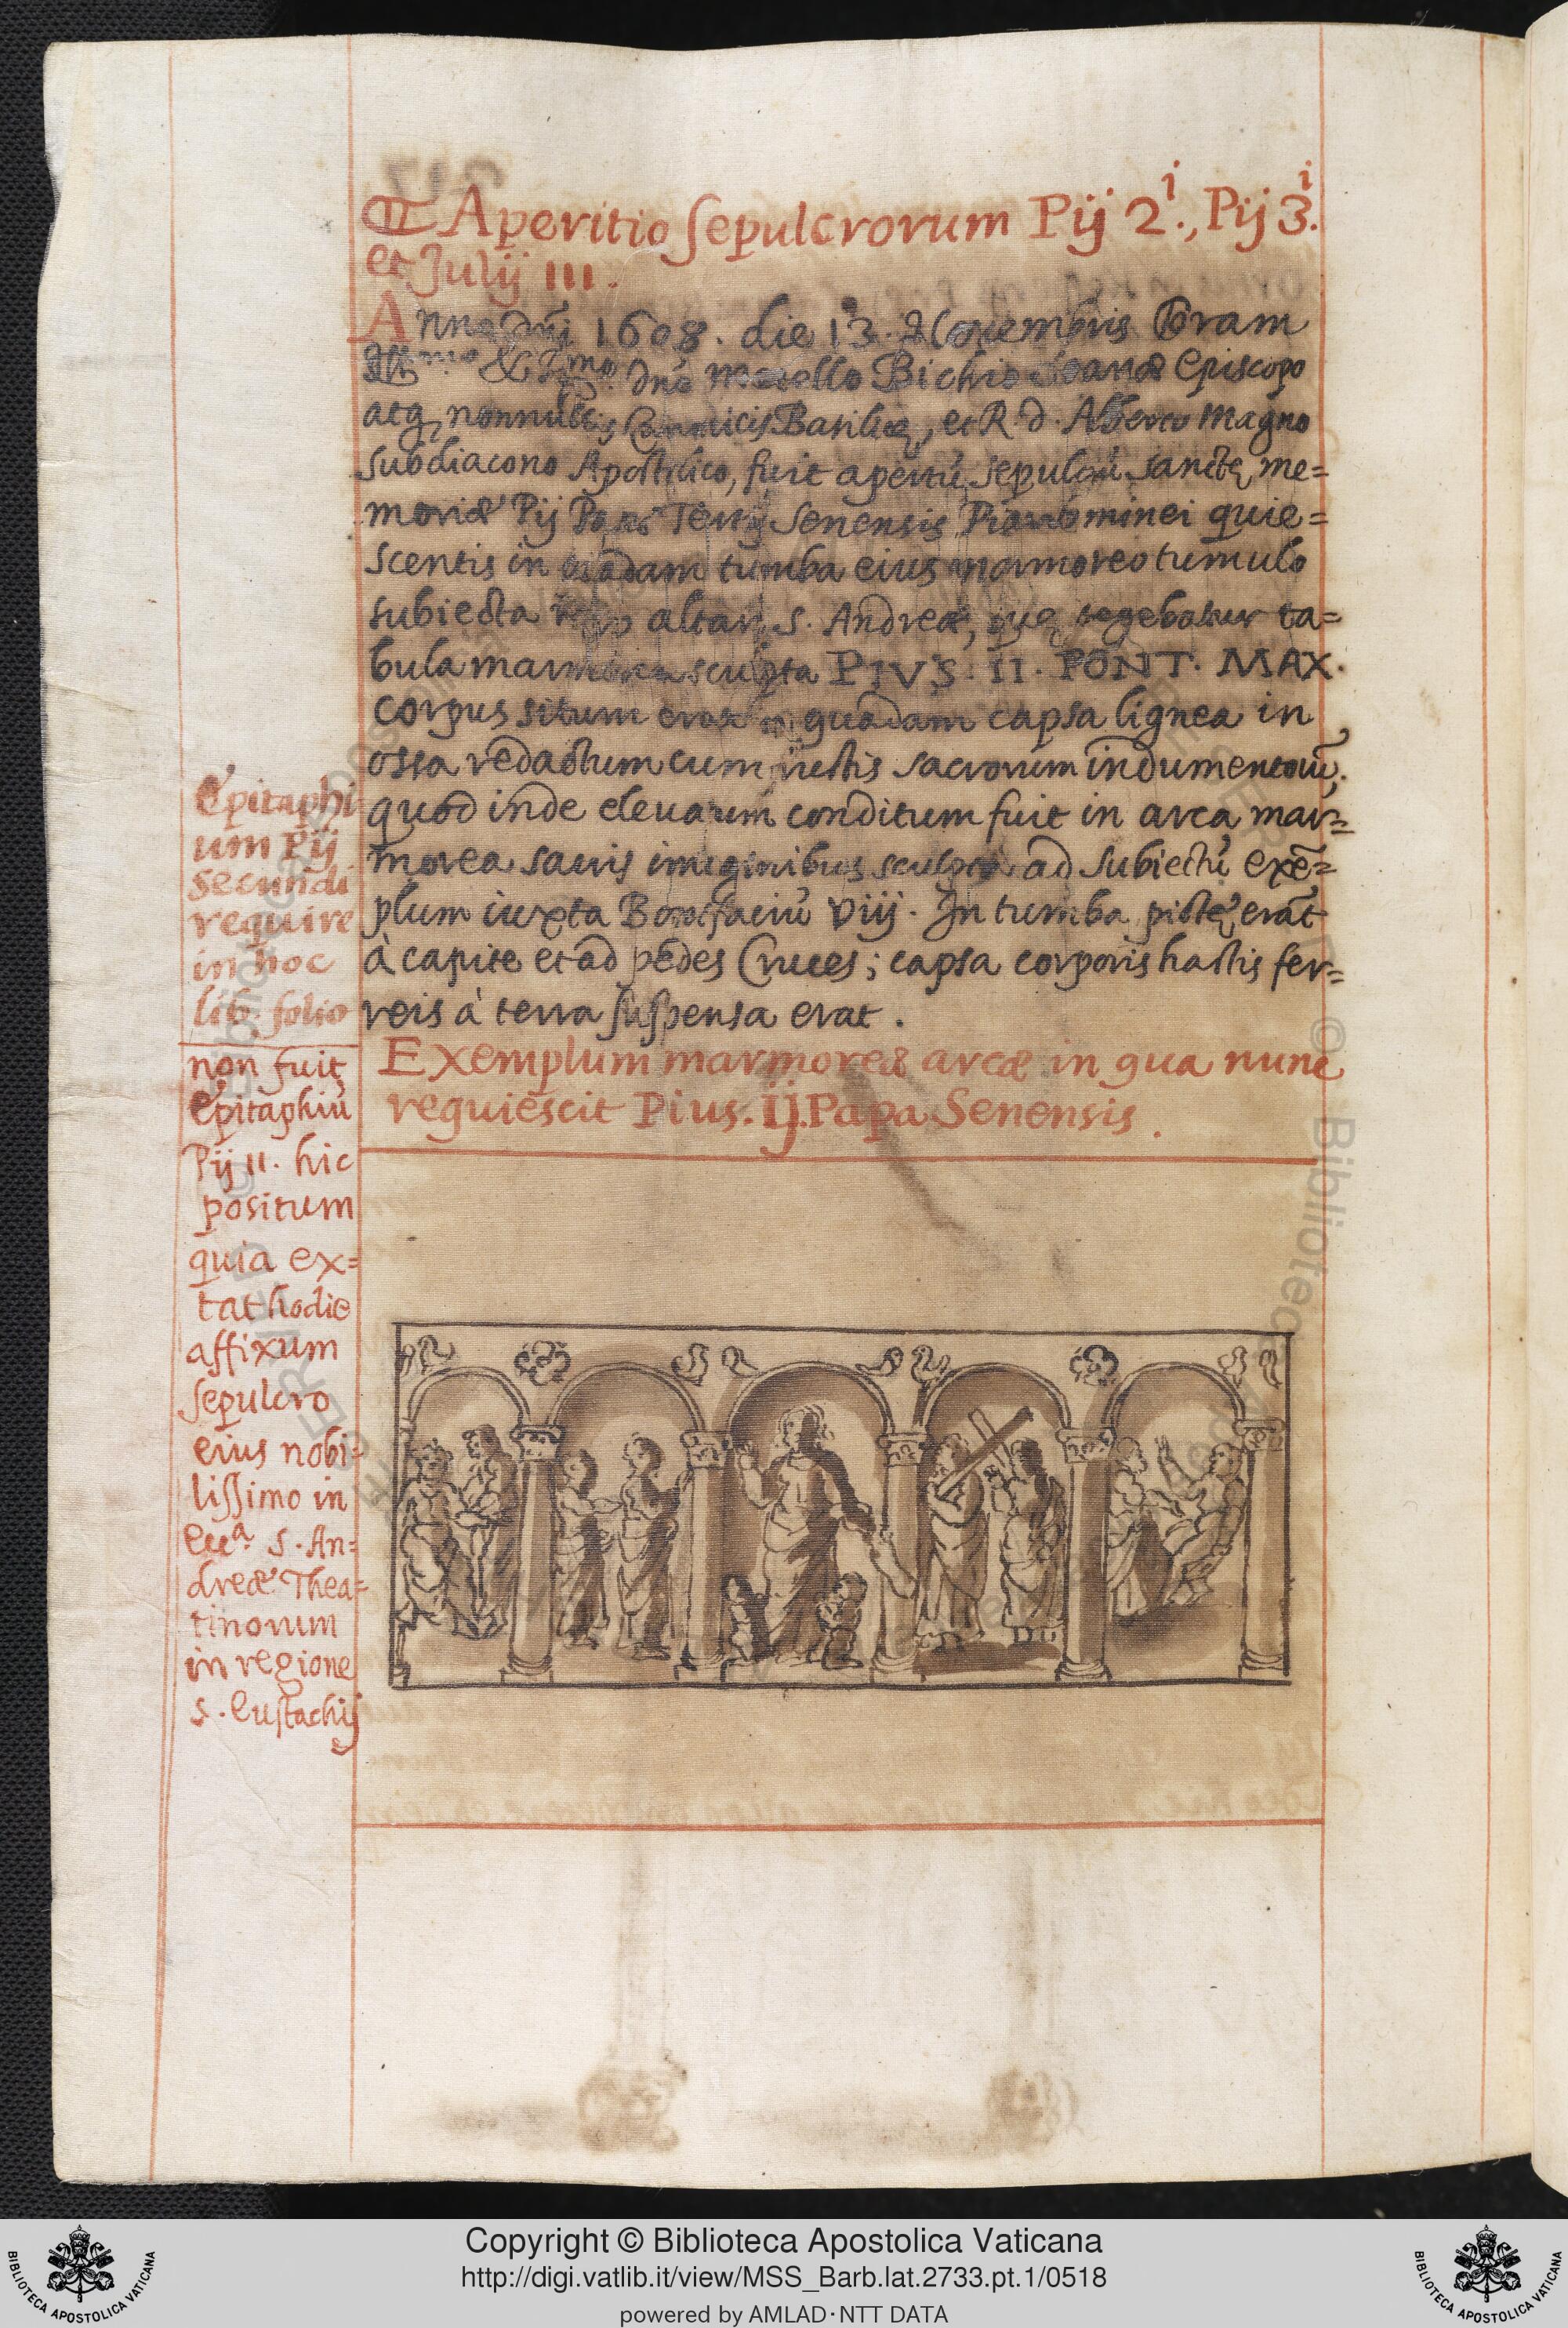 Aperitio sepulcrorum Pij 2.i, Pij 3.i
et Julij III.
Anno Dnj 1608. die 13. Nouembris Coram
Illmo & Rmo. Dno Metello Bichio Soanæ Episcopo
atq, nonnullis Canonicis Basilicę, et R. d. Alberto Magno
subdiacono Apostolico, fuit apertũ sepulcrũ sanctę me=
moriæ Pij Papæ Tertij Senensis Piccolominei quie=
scentis in quadam tumba eius marmoreo tumulo
subiecta altari S. Andreæ, que tegebatur ta=
bula marmorea sculpta PIVS. II. PONT. MAX.
corpus situm erat in quadam capsa lignea in
ossa redactum cum uestis sacrorum indumentorũ,
quod inde eleuatum conditum fuit in arca mar=
morea sacris imaginibus sculpta ad subiectũ exẽ=
plum iuxta Bonifaciũ Viij. In tumba pictę erãt
à capite et ad pedes Cruces; capsa corporis hastis fer=
reis à terra suspensa erat.
Exemplum marmoreæ arcæ in qua nunc
requiescit Pius. IJ. Papa Senensis.
Epitaphi=
um Pij
secundi
require
in hoc
lib. folio
non fuit
epitaphiũ
Pij II. hic
positum
quia ex=
tat hodie
affixum
sepulcro
eius nobi=
lissimo in
ecca. S. An=
dreæ Thea=
tinorum
in regione
S. Eustachij
Copyright © Biblioteca Apostolica Vaticana
http://digi.vatlib.it/view/MSS_Barb.lat.2733.pt.1/0518
powered by AMLAD·NTT DATA
BIBLIOTECA APOSTOLICA VATICANA
BIBLIOTECA APOSTOLICA VATICANA